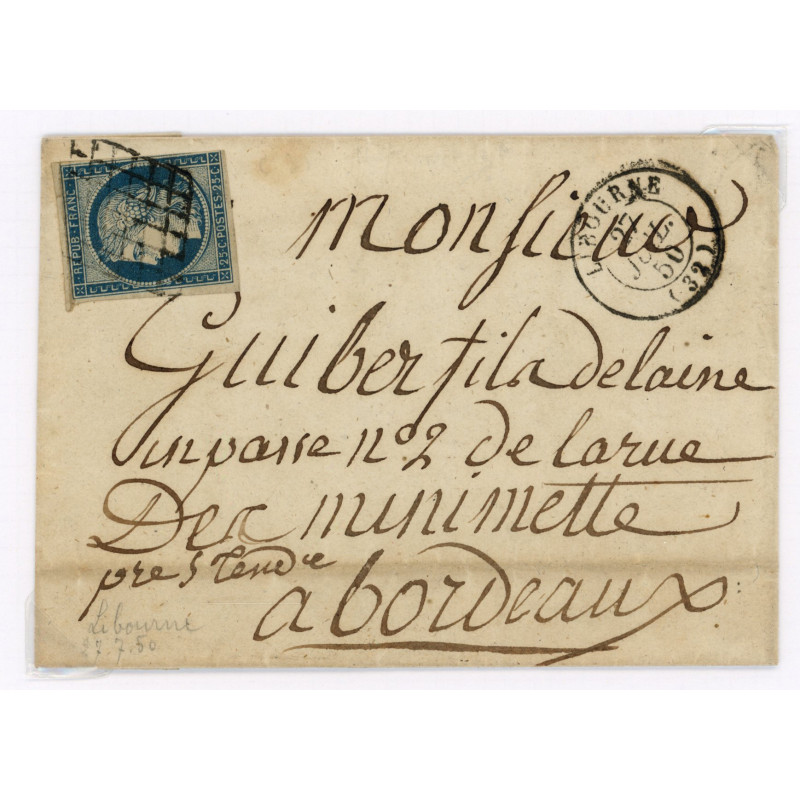 REPUB. FRANC.
25.C. POSTES. 25.C.
LIBOURNE
27
JUIL.
50
(32)
Monsieur
Guiber fils delaine
inpasse n°2 de la rue
Des minimette
pre St
a bordeaux
Libourne
27.7.50